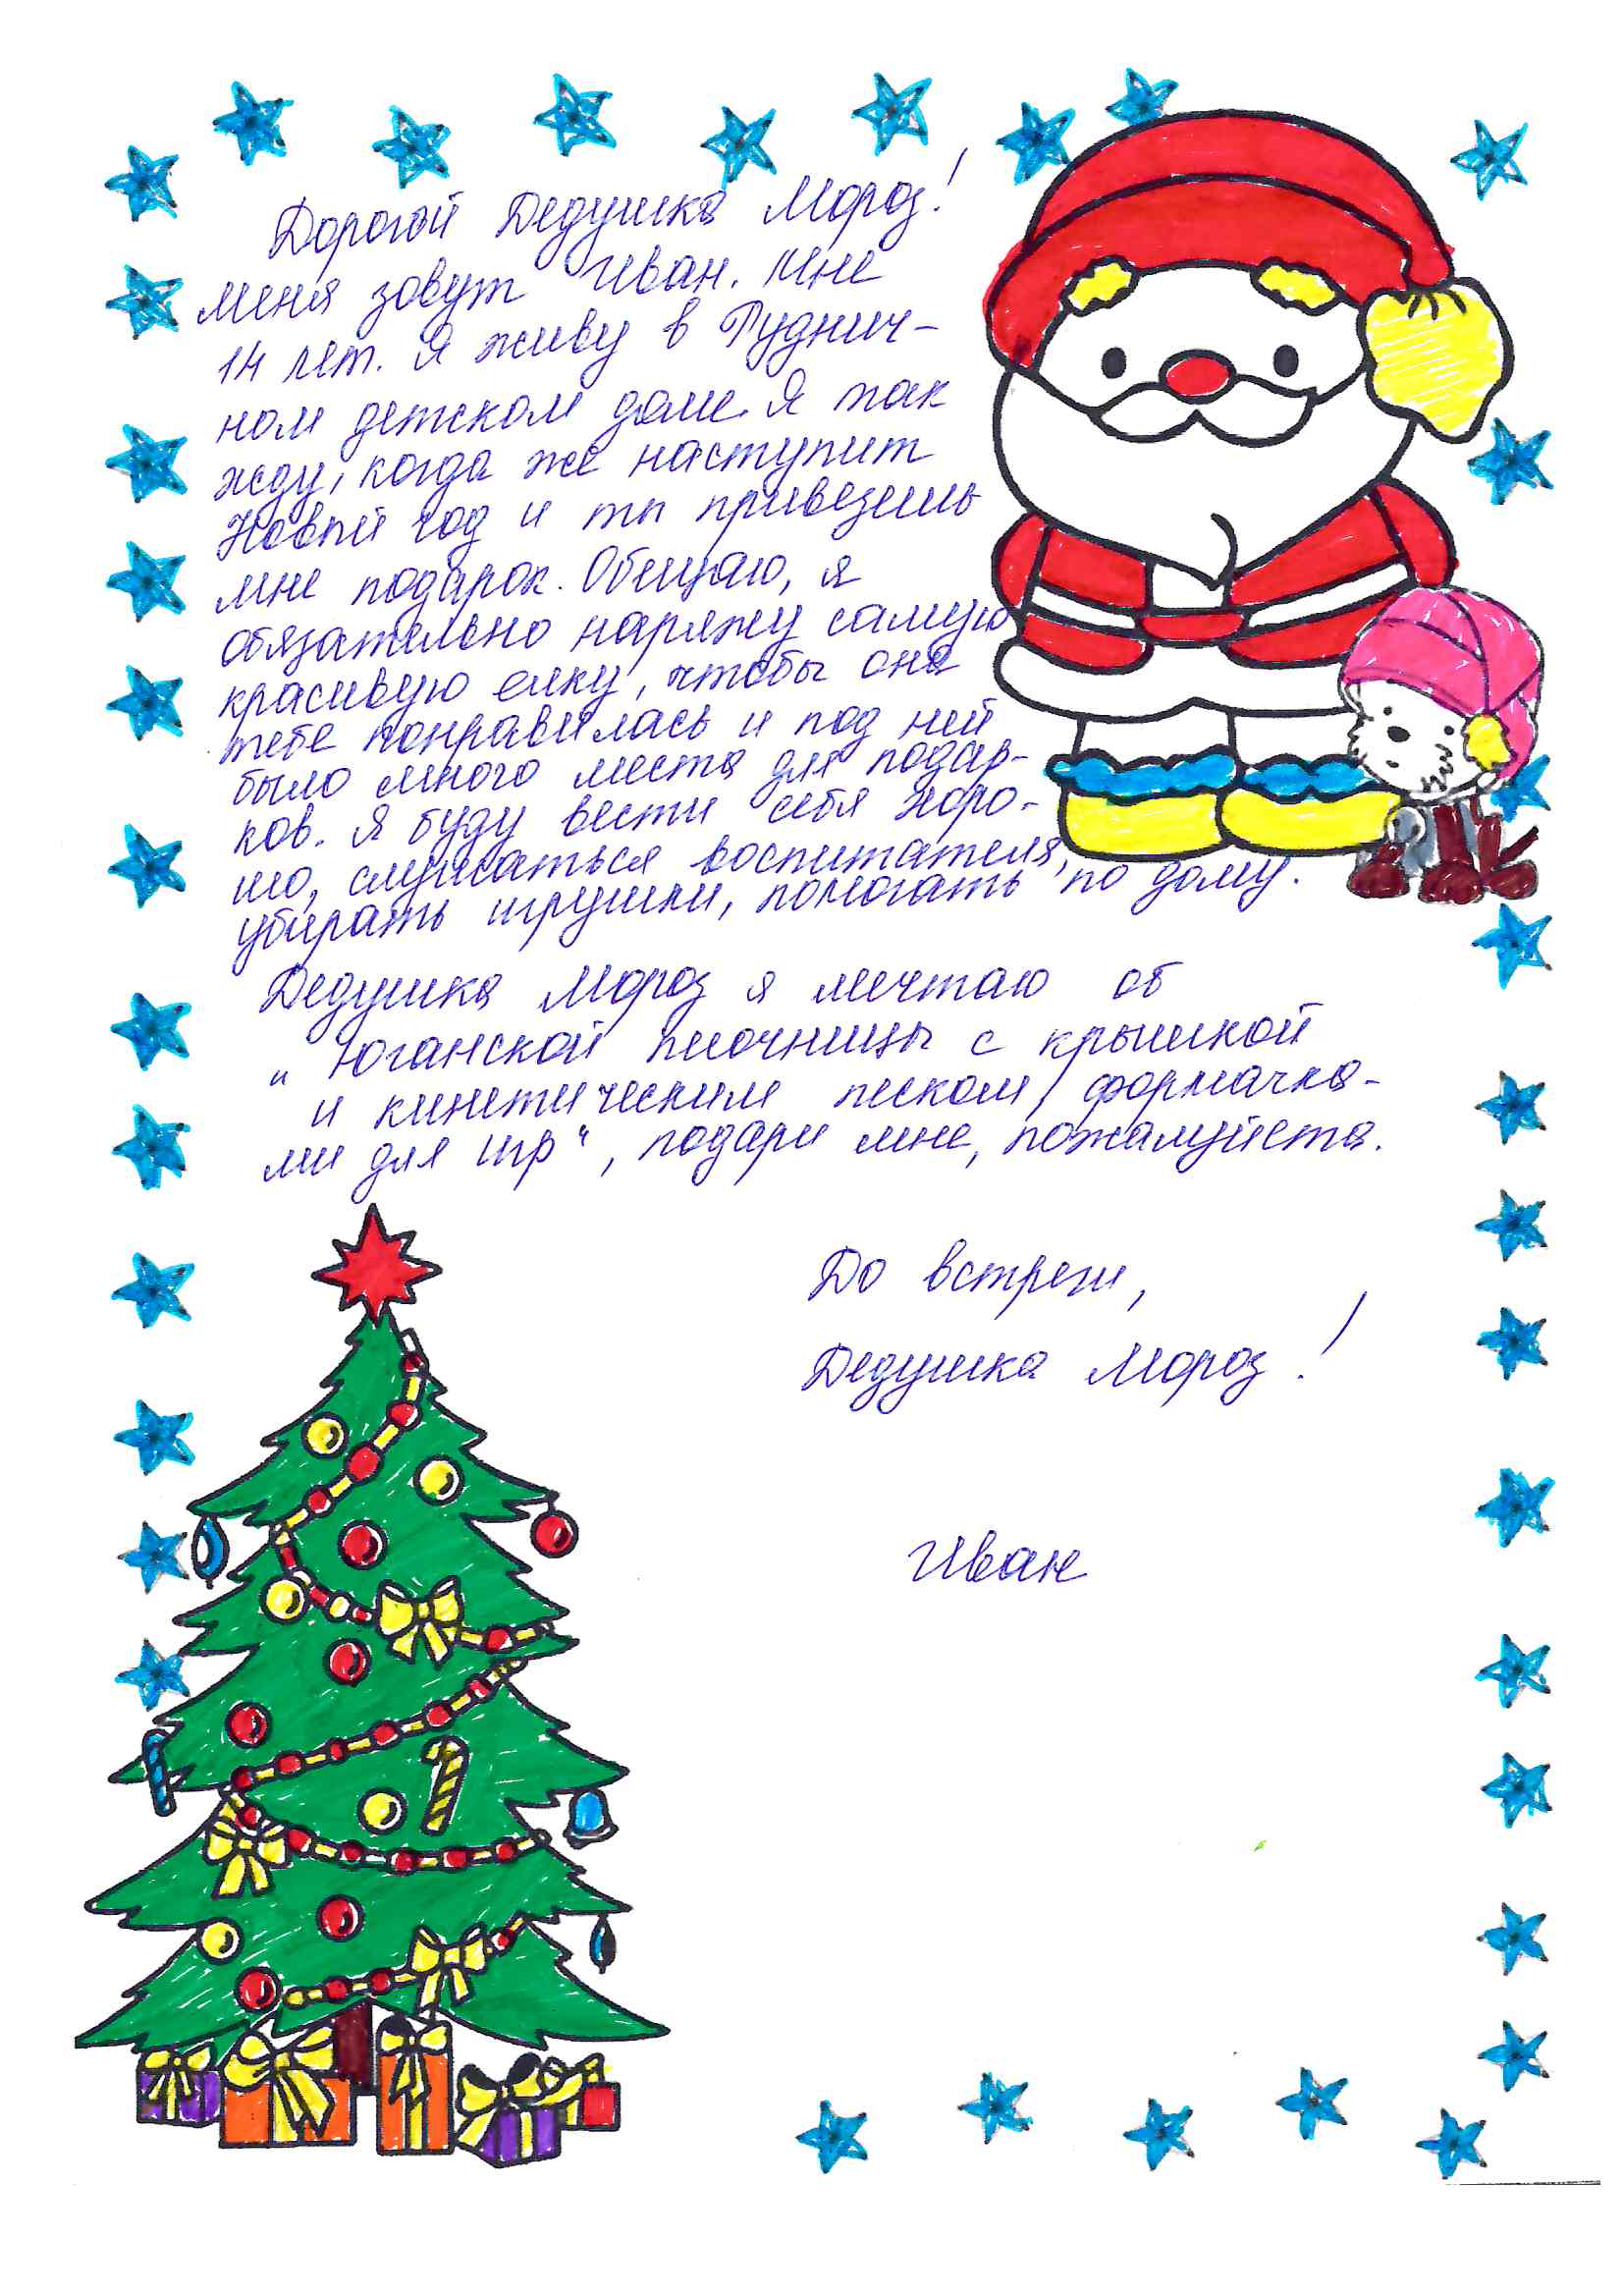 Дорогой Дедушка Мороз!
Меня зовут Иван. Мне
14 лет. Я живу в Руднич-
ном детском доме. Я так
жду, когда же наступит
Новый год и ты привезешь
мне подарок. Обещаю, я
обязательно наряжу самую
красивую елку, чтобы она
тебе понравилась и под ней
было много места для подар-
ков. Я буду вести себя хоро-
шо, слушаться воспитателя,
убирать игрушки, помогать по дому.
Дедушка Мороз я мечтаю об
„Юганской песочницы с крышкой
и кинетическим песком, формочка-
ми для игр“, подари мне, пожалуйста.
До встречи,
Дедушка Мороз!
Иван